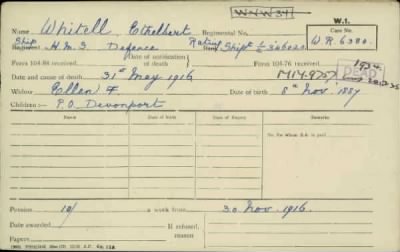 W/W/W 341
W.1.
Name Whitell, Ethelbert Regimental No.
Case No.
W.R. 6380.
Ship H.M.S. Defence Rating Shipt
Date of notification of death
Forms 104-88 received Forms 104-76 received
M14.9757
1924
DEAD
Date and cause of death 31st May 1916
Widow Ellen F. Date of birth 8th Nov. 1887
Children:— P.O. Devonport
Name Date of Birth Date of Expiry Remarks
No. for whom S.A. is paid
Pension 10/ a week from 30 Nov. 1916.
Date awarded If refused, reason
Papers